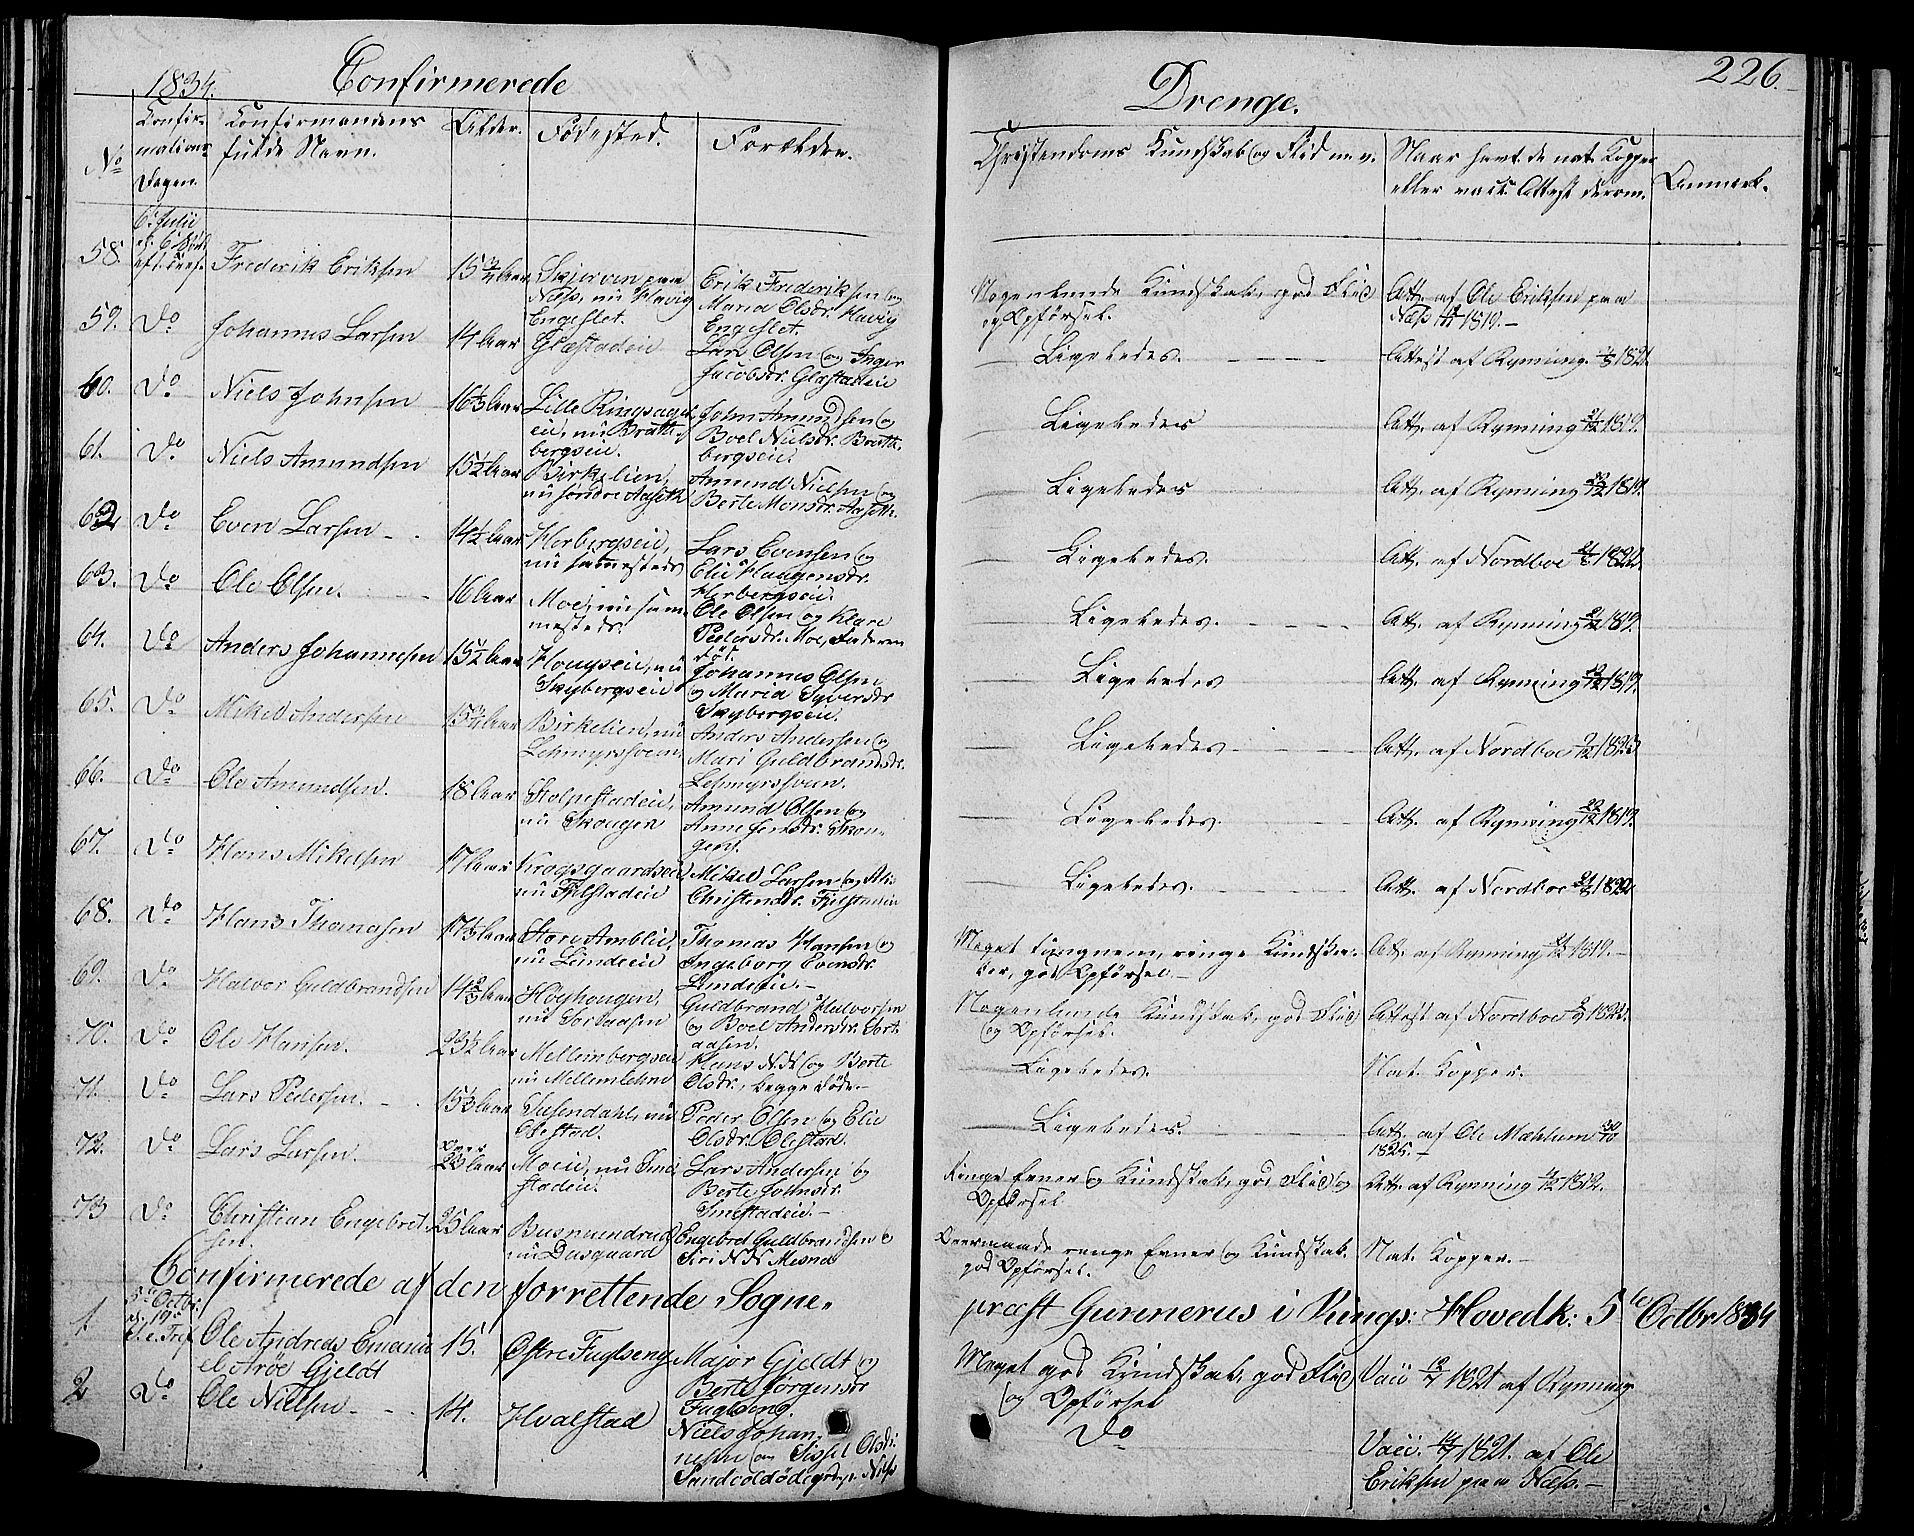 1834.
Confirmerede
Drenge.
226.
No
Confir-
mations-
Dagen.
Confirmandens
fulde Navn.
Alder.
Fødested.
Forældre.
Christendoms Kundskab og Flid m.v.
Naar havt de nat. Kopper
eller vacc. Attest derom.
Anmærk.
58.
6te Julii
Frederik Eriksen
15 3/4 Aar
Skjerven paa
Næss, nu Havig
Engeslet.
Erik Frederiksen og
Maria Olsdr. Havig
Engeslet.
Nogenlunde Kundskab, god Flid
og Opførsel.
Att. af Ole Eriksen paa
Næss 1819.-
59.
Do
Johannes Larsen
14 Aar
Glæstadeie
Lars Olsen og Inger
Jacobsdr. Glæstadeie
Ligeledes.
Attest af Rynning 1821.
60.
Do
Niels Johnsen
16 1/2 Aar
Lille Ringsager
eie, nu Bratt-
bergseie.
John Amundsen og
Boel Nielsdr. Bratt-
bergseie.
Ligeledes
Att. af Rynning 1819.
61.
Do
Niels Amundsen
15 1/2 Aar
Birkelien,
nu søndre Aaseth
Amund Nielsen og
Berte Monsdr. Aaseth.
Ligeledes
Att. af Rynning 1819.
62
Do
Even Larsen
14 1/2 Aar
Herbergseie,
nu sammesteds
Lars Evensen og
Elie Haagensdr.
Herbergseie.
Ligeledes.
Att. af Nordboe 1822.
63.
Do
Ole Olsen.
16 Aar
Moe, nu sam-
mesteds.
Ole Olsen og Klare
Pedersdr. Moe, Faderen
død.
Ligeledes.
Att. af Rynning 1819.
64.
Do
Anders Johannesen
15 1/2 Aar
Hougseie, nu
Skybergseie
Johannes Olsen
og Maria Syversdr
Skybergseie.
Ligeledes
Att. af Rynning 1819.
65.
Do
Mikel Andersen
15 3/4 Aar
Birkelien, nu
Lehmyrssveen
Anders Andersen og
Mari Guldbrandsdr.
Lehmyrssveen.
Ligeledes
Att. af Nordboe 1823
66.
Do
Ole Amundsen.
18 Aar
Stolpestadeie,
nu Skougen
Amund Olsen og
Anne Jensdr. Skou-
gen.
Ligeledes.
Att. af Rynning 1819.
67.
Do
Hans Mikelsen
17 Aar
Krogsgaardseie
nu Fjelstadeie
Mikel Larsen og
Christensdr. Fjelstadeie
Ligeledes.
Att. af Nordboe 1822
68.
Do
Hans Thomasen
17 1/2 Aar
Store Amblie,
nu Lundeeie
Thomas Hansen og
Ingeborg Evensdr.
Lundeeie.-
Meget tungnem, ringe Kundska-
ber, god Opførsel.-
Att. af Rynning 1819.-
69.
Do
Halvor Guldbrandsen
14 2/3 Aar
Høyhougen,
nu Sortaasen
Guldbrand Halvorsen
og Boel Andersdr. Sort-
aasen.
Nogenlunde Kundskab, god Flid
og Opførsel.
Attest af Nordboe 1822.
70.
Do
Ole Hansen.
23 1/2 Aar
Mellembergseie
nu Mellemlehne
Hans N.N. og Berte
Olsdr., begge døde.-
Ligeledes.
Nat. Kopper.
71.
Do
Lars Pedersen.
15 1/2 Aar
Tusendahl, nu
Olestad.
Peder Olsen og Elie
Olsdr. Olestad.
Ligeledes.
Att. af Ole Mæhlum
1825.-
72.
Do
Lars Larsen.
23 Aar
Moeie, nu Sme-
stadeie.
Lars Andersen og
Berte Johnsdr.
Smestadeie.-
Ringe Evner og Kundskab, god Flid og
Opførsel
Att. af Rynning 1812.
73
Do
Christian Engebret-
sen.
25 Aar
Busmundrud
nu Dusgaard
Engebret Guldbrandsen &
Siri N N Mesna
Overmaade ringe Evner og Kundskab.
god Opførsel.
Nat. Kopper.-
Confirmerede af den forrettende Sogne-
præst Gurenerus i Rings: Hovedk: 5te Octbr 1834
1
5te Octbr.
Ole Andreas Emanu-
el Arøe Gjeldt
15.
Østre Fuglseng
Major Gjeldt og
Berte Jørgensdr
Fuglseng.
Meget god Kundskab, god Flid
og Opførsel
Vacc. 1821 af Rynning
2
Do
Ole Nielsen
14.
Hvalstad
Niels Johan-
nesen og Sissel Olsdr.
Do
Vacc. 1821. af Ole
Eriksen paa Næss.-